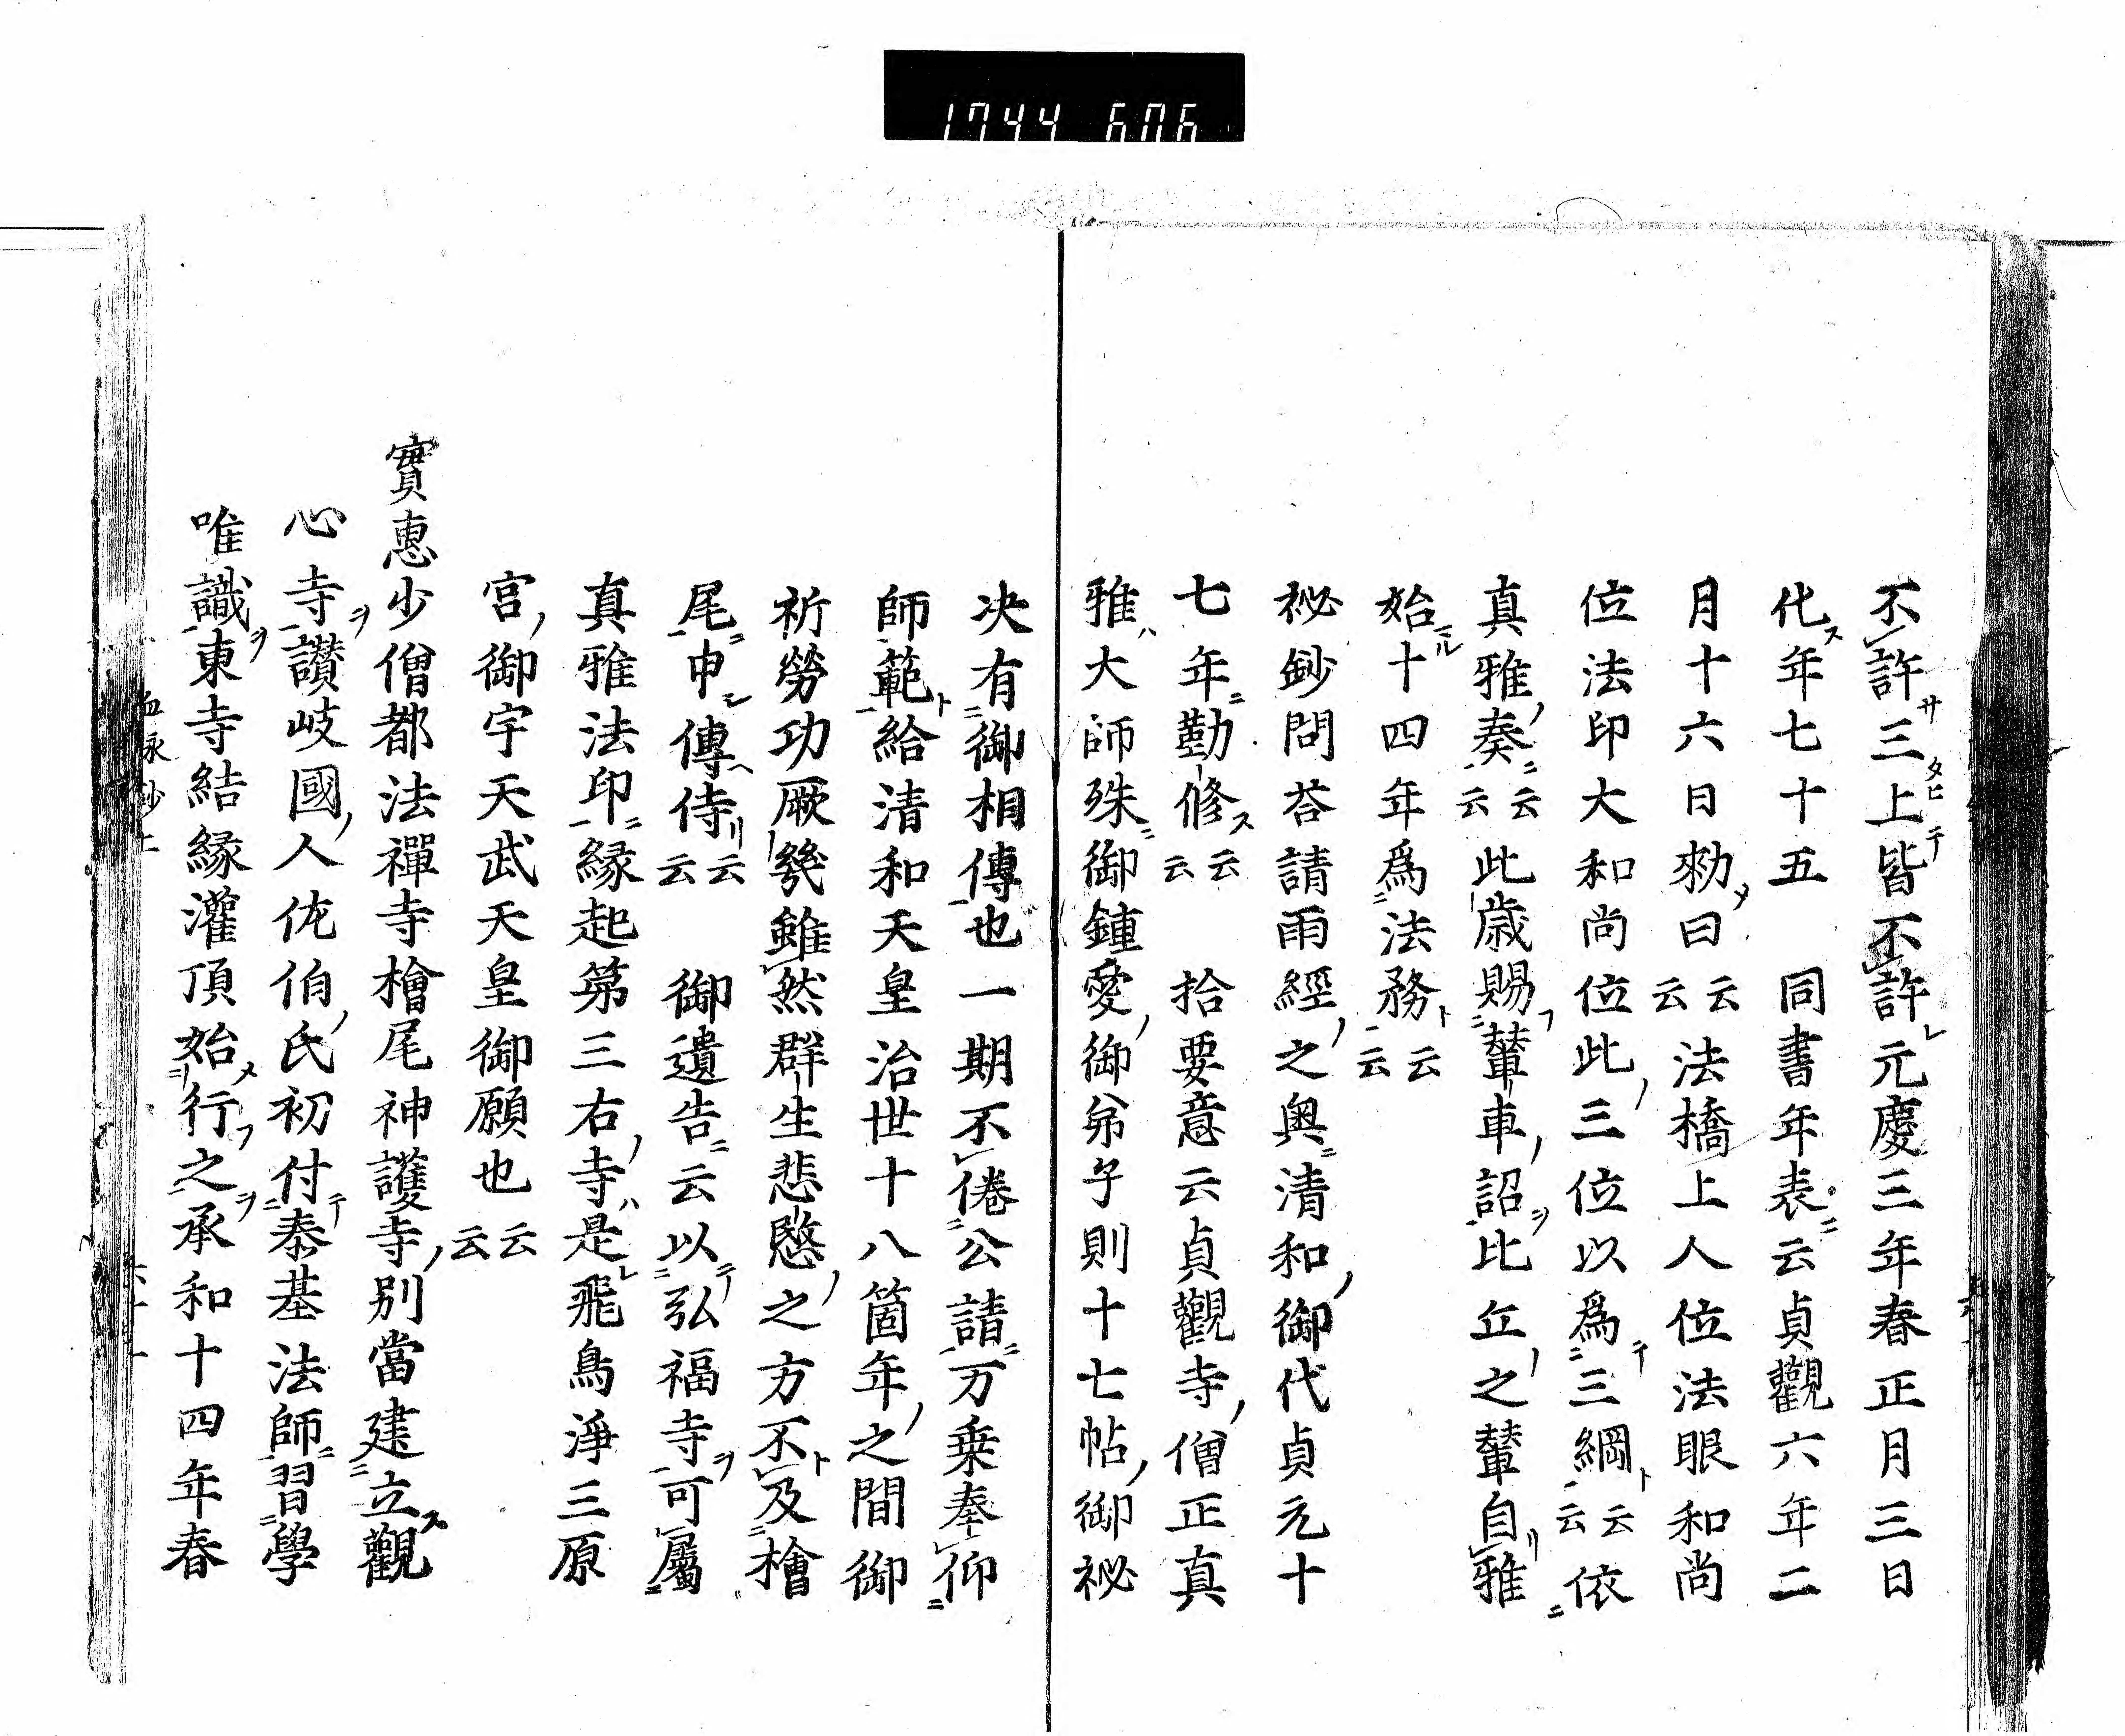 1744 606
不許三上皆不許元慶三年春正月三日
化年七十五　同書年表云貞觀六年二
月十六日勅曰云云法橋上人位法眼和尚
位法印大和尚位此三位以爲三綱云云依
真雅奏云云此歳賜輦車詔比丘之輦自雅
始十四年爲法務云云
祕鈔問荅請雨經之奥清和御代貞元十
七年勤修云云　拾要意云貞觀寺僧正真
雅大師殊御鍾愛御弟子則十七帖御祕
决有御相傳也一期不倦公請万乗奉仰
師範給清和天皇治世十八箇年之間御
祈勞功厥幾雖然群生悲愍之方不及檜
尾申傳侍云云　御遺告云以弘福寺可屬
真雅法印縁起第三右寺是飛鳥淨三原
宮御宇天武天皇御願也云云
實惠少僧都法禪寺檜尾神護寺別當建立觀
心寺讃岐國人佐伯氏初付泰基法師習學
唯識東寺結縁灌頂始行之承和十四年春